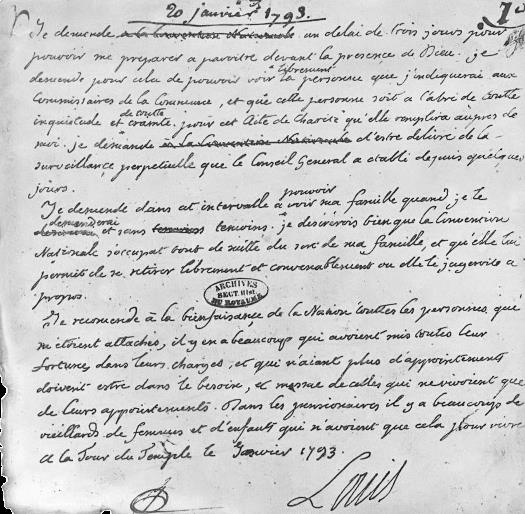 20 janvier 1793.
Je demande à la Convention Nationale un delai de trois jours pour
pouvoir me preparer a paroitre devant la presence de Dieu. je
demande pour cela de pouvoir voir librement la personne que j'indiquerai aux
Commissaires de la Commune, et que cette personne soit a l'abri de toutte
inquietude et de toutte crainte pour cet Acte de Charité qu'elle remplira aupres de
moi. je demande à la Convention Nationale d'estre delivré de la
surveillance perpetuelle que le Conseil General a etabli depuis quelques
jours.
Je demande dans cet intervalle a pouvoir voir ma famille quand je le
demanderai et sans temoins temoins. je desirerois bien que la Convention
Nationale s'occupat tout de suitte du sort de ma famille, et qu'elle lui
permit de se retirer librement et convenablement ou elle le jugeroit a
propos.
ARCHIVES
SECT. HIST.
DU ROYAUME
Je recomende à la bienfaisance de la Nation touttes les personnes qui
m'etoient attachés, il y en a beaucoup qui avoient mis toutes leur
fortunes dans leurs charges, et qui n'aiant plus d'appointements
doivent estre dans le besoin, et mesme de celles qui ne vivoient que
de leurs appointements. Dans les pensionaires il y a beaucoup de
vieillards de femmes et d'enfants qui n'avoient que cela pour vivre
a la Tour du Temple le Janvier 1793.
Louis